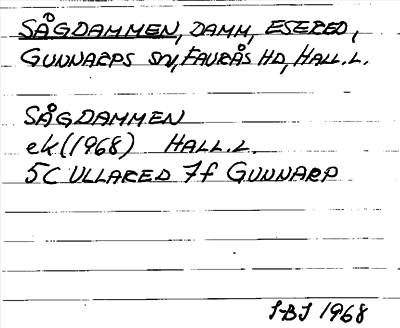 SÅGDAMMEN, DAMM, ESERED,
GUNNARPS SN, FAURÅS HD, HALL.L.
SÅGDAMMEN
ek (1968) HALL.L.
5C ULLARED 7f GUNNARP
SBS 1968